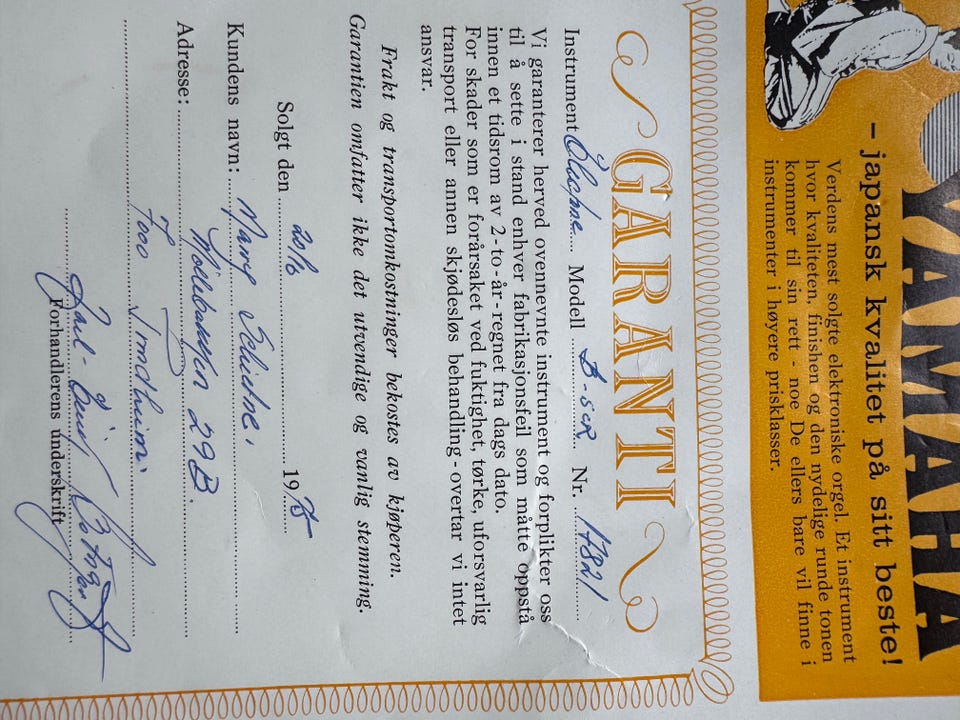 YAMAHA
– japansk kvalitet på sitt beste!
Verdens mest solgte elektroniske orgel. Et instrument
hvor kvaliteten, finishen og den nydelige runde tonen
kommer til sin rett - noe De ellers bare vil finne i
instrumenter i høyere prisklasser.
GARANTI
Instrument Modell B-5CR Nr. 17821
Vi garanterer herved ovennevnte instrument og forplikter oss
til å sette i stand enhver fabrikasjonsfeil som måtte oppstå
innen et tidsrom av 2-to-år-regnet fra dags dato.
For skader som er forårsaket ved fuktighet, tørke, uforsvarlig
transport eller annen skjødesløs behandling-overtar vi intet
ansvar.
Frakt og transportomkostninger bekostes av kjøperen.
Garantien omfatter ikke det utvendige og vanlig stemning.
Solgt den 20/6 1975
Kundens navn:
Adresse: 29B.
7000 Trondheim
Forhandlerens underskrift